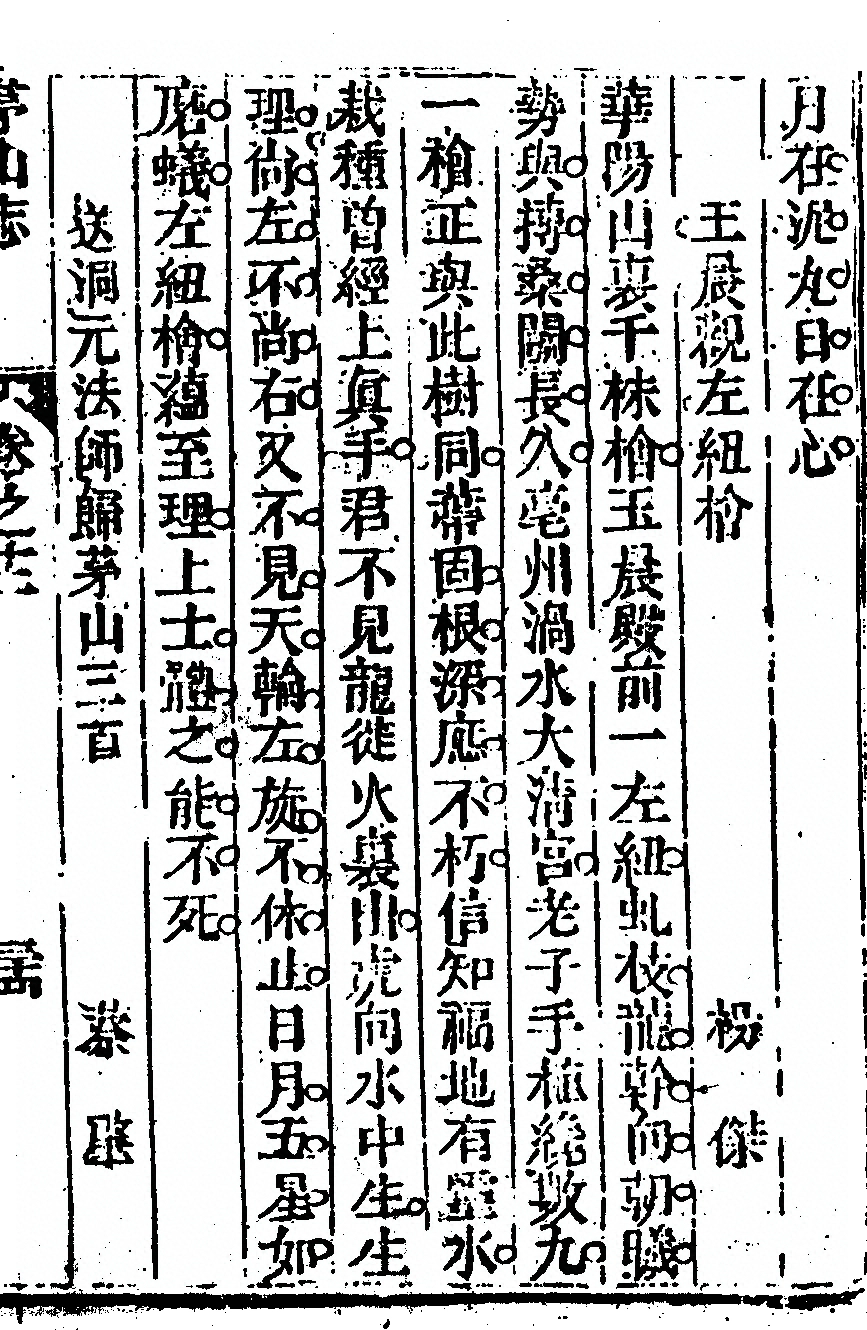 月在泥丸日在心
王晨觀左紐檜 楊傑
華陽山裏千株檜玉晨殿前一左紐虬枝龍幹向朝曦
勢與搏桑關長久亳州渦水大清宮老子手植纔數九
一檜正與此樹同蒂固根深應不朽信知福地有靈水
栽種曾經上真手君不見龍從火裏出虎向水中生生
理尚左不尚右又不見天輪左旋不休止日月五星如
磨蟻左紐檜蘊至理上士體之能不死
送洞元法師歸茅山三百 蔡肇
茅山志 卷之十三